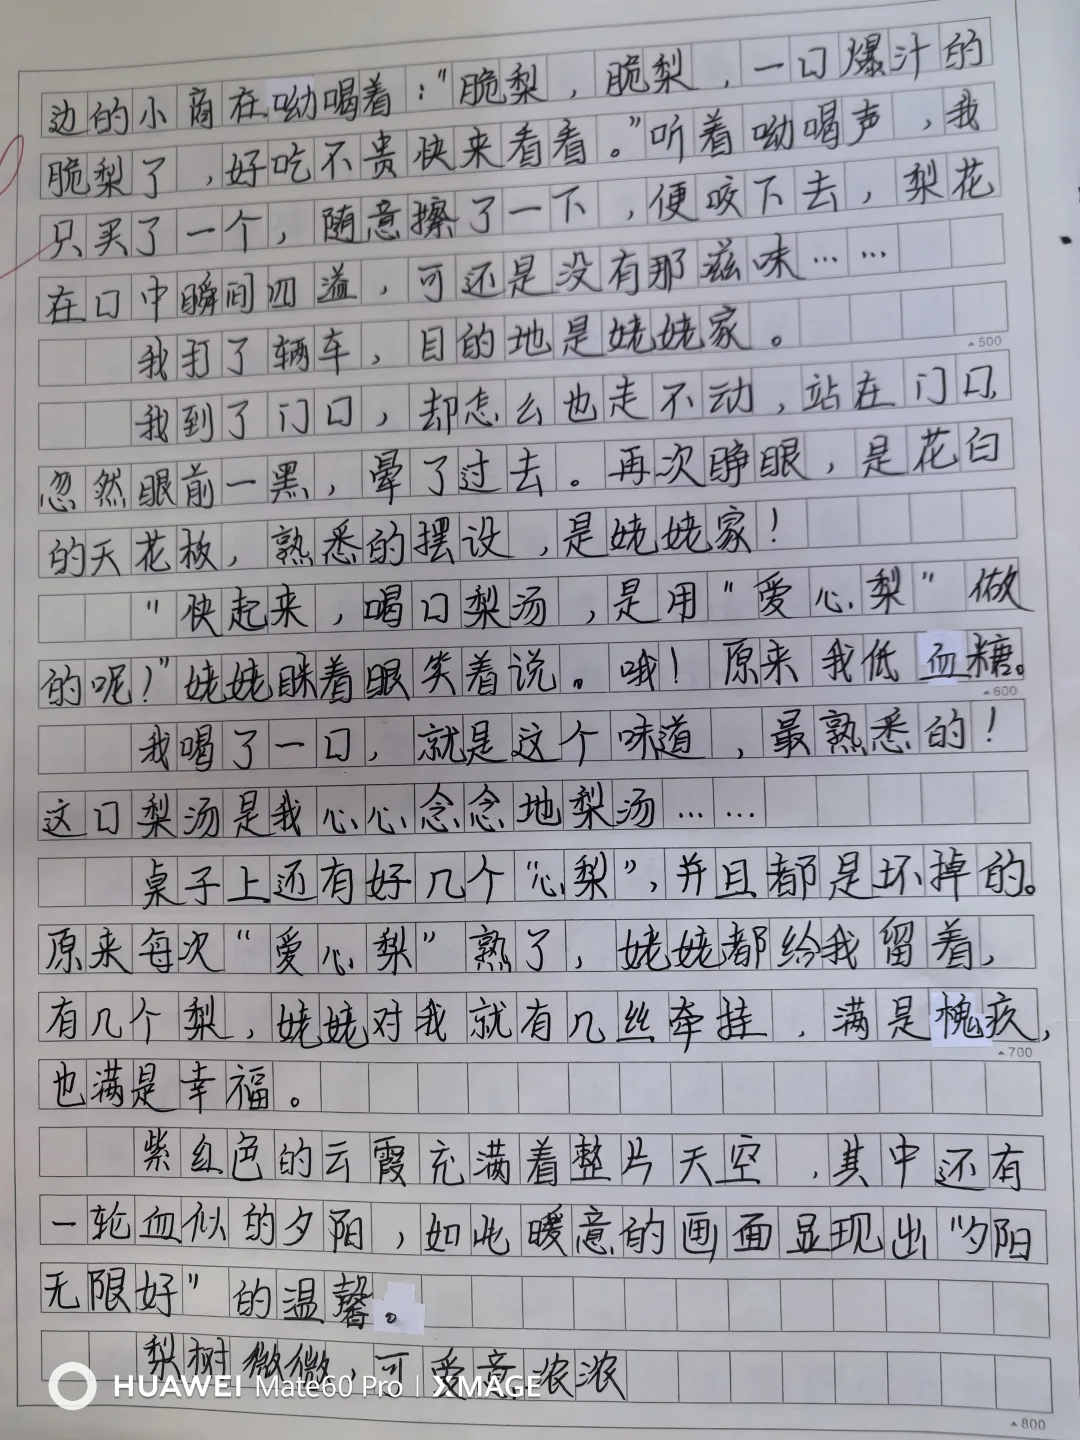 边的小商在呦喝着：“脆梨，脆梨，一口爆汁的
脆梨了，好吃不贵快来看看。”听着呦喝声，我
只买了一个，随意擦了一下，便咬下去，梨花
在口中瞬间四溢，可还是没有那滋味……
我打了辆车，目的地是姥姥家。
▲500
我到了门口，却怎么也走不动，站在门口，
忽然眼前一黑，晕了过去。再次睁眼，是花白
的天花板，熟悉的摆设，是姥姥家！
“快起来，喝口梨汤，是用“爱心梨”做
的呢！”姥姥眯着眼笑着说。哦！原来我低血糖。
▲600
我喝了一口，就是这个味道，最熟悉的！
这口梨汤是我心心念念地梨汤……
桌子上还有好几个“心梨”，并且都是坏掉的。
原来每次“爱心梨”熟了，姥姥都给我留着，
有几个梨，姥姥对我就有几丝牵挂，满是愧疚，
▲700
也满是幸福。
紫红色的云霞充满着整片天空，其中还有
一轮血似的夕阳，如此暖意的画面显现出“夕阳
无限好”的温馨。
梨树微微，可爱意浓浓
HUAWEI Mate60 Pro | XMAGE
▲800